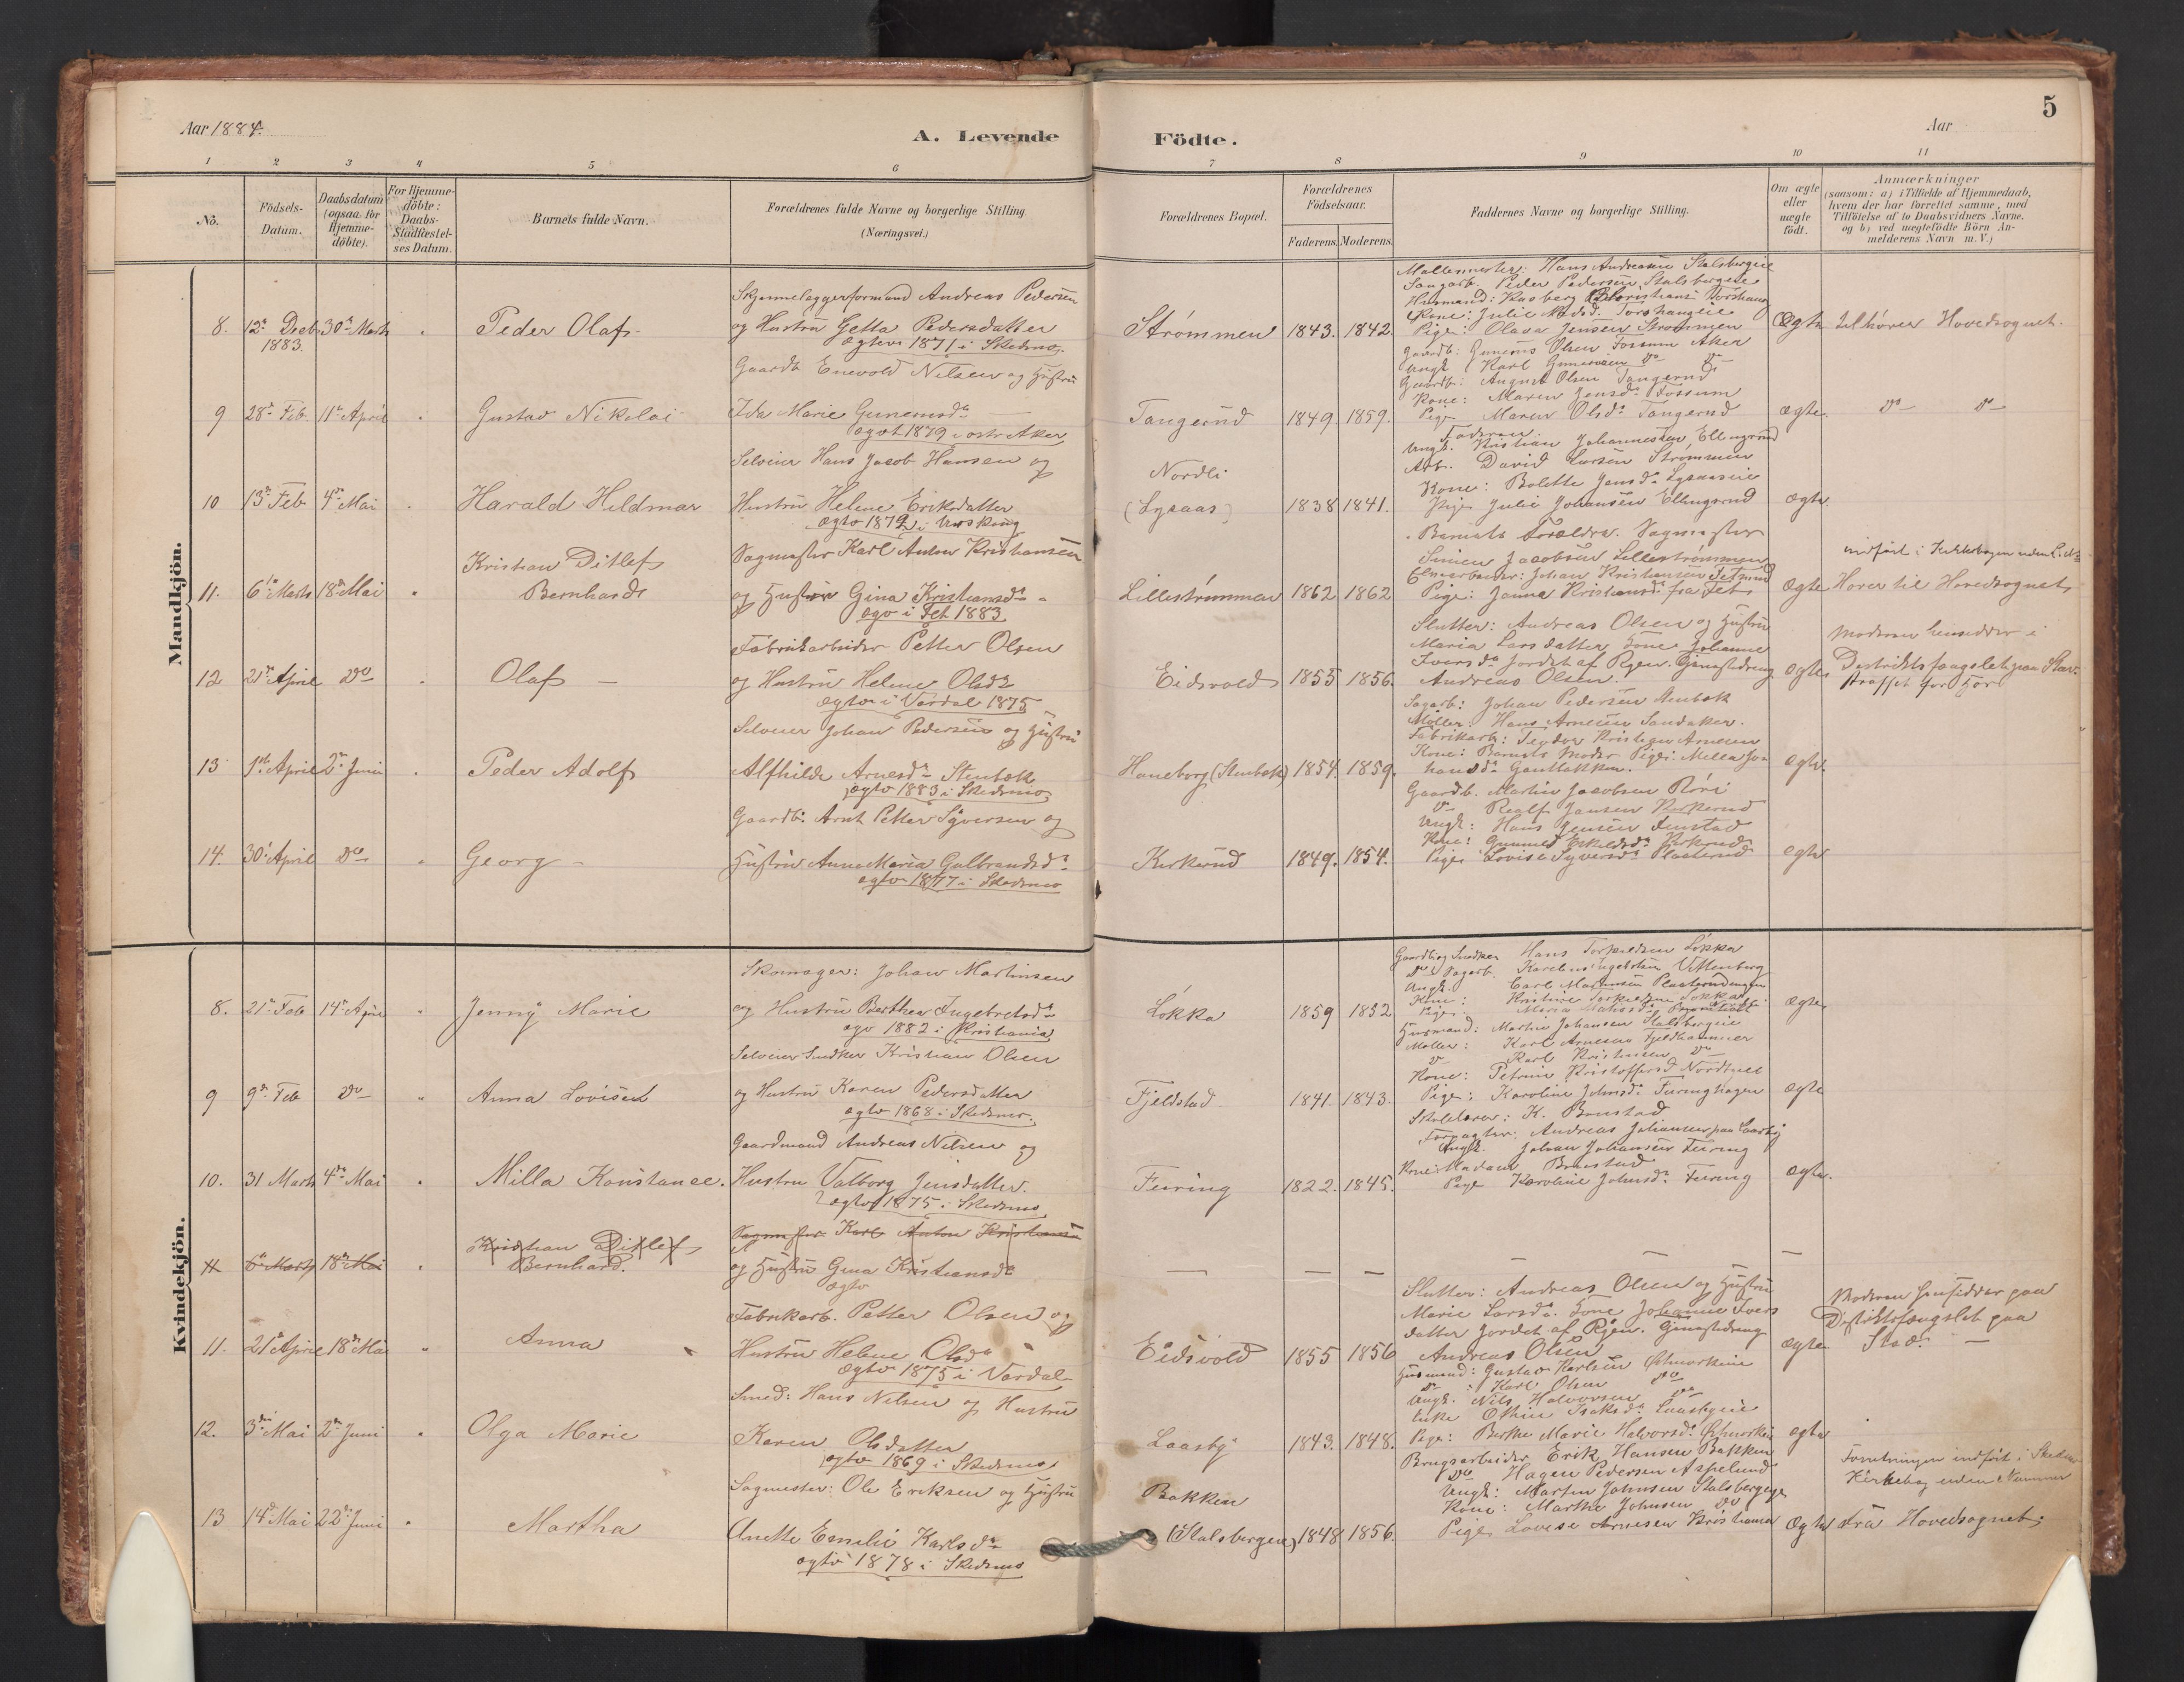 Aar 1884.
A. Levende
Födte.
Aar
5
1 2 3 4 5 6 7 8 9 10 11
No.
Födsels-Datum.
Daabsdatum (ogsaa for Hjemme-döbte).
For Hjemme-döbte: Daabs-Stadfæstel-ses Datum.
Barnets fulde Navn.
Forældrenes fulde Navne og borgerlige Stilling.
(Næringsvei.)
Forældrenes Bopæl.
Forældrenes Födselsaar.
Faderens. Moderens.
Faddernes Navne og borgerlige Stilling.
Om ægte eller uægte födt.
Anmærkninger
(saasom: a) i Tilfælde af Hjemmedaab,
hvem der har forrettet samme, med
Tilföielse af to Daabsvidners Navne.
og b) ved uægtefödte Börn An-
melderens Navn m. V.)
Mandkjön.
8. 12te Decb 1883. 30te Marts Peder Olaf
Andreas Pedersen
og Hustru Getta Pedersdatter
Ægtev 1871 i Skedsmo.
Strømmen 1843. 1842.
Hans Andreasen Stalsbergeie
Peder Pedersen Stalsbergeie
Pige: Olava Jensen Strømmen
Ægte tilhører Hovedsognet.
9 28de Feb. 11te April Gustav Nikolai
Gaardb. Enevold Nilsen og Hustru
Ida Marie Gunerusd.
ægt 1879 i østr Aker
Tangerud 1849. 1859.
Gaardb: Gunerus Olsen Fossum Aker
Ungk. Karl Gunerusen do do
Gaardb: August Olsen Tangerud
Kone: Maren Jensd. Fossum
Pige Maren Olsd. Tangerud
ægte. do do
10 13de Feb 4de Mai Harald Hildmar
Selveier Hans Jacob Hansen og
Hustru Helene Eriksdatter
Nordli
(Lysaas) 1838 1841.
Faderen.
Ungk. Kristian Johannesen Ellingsrud
Arb. David Larsen Strømmen
Kone: Bolette Jensd. Lysaaseie
Pige Julie Johansen Ellingsrud
ægte.
11. 6te Marts 18de Mai Kristian Ditlef
Bernhard
Sagmester Karl Anton Kristiansen
og Hustru Gina Kristiansd.
ægv i Fet 1883
Lillestrømmen 1862 1862
Barnets Forældre. Sagmester
Simen Jacobsen Lillestrømmen
Johan Kristiansen Fetsund
Pige: Janna Kristiansd. fra Fet
ægte
indført i Kirkebogen uden L. No
Hører til Hovedsognet
12 21de April do Olaf
Fabrikarbeider Petter Olsen
og Hustru Helene Olsd.
ægtev i Vardal 1875
Eidsvold 1855 1856.
Slutter: Andreas Olsen og Hustru
Maria Larsdatter Kone Johanne
Andreas Olsen.
ægte
Moderen hensidder i
Distriktsfængslet paa
straffet for
13 1ste April 2den Juni Peder Adolf
Selveier Johan Pedersen og Hustru
Alfhilde Arnesd. Stenbæk
ægtv 1883 i Skedsmo
Haneborg (Stenbæk) 1854. 1859.
Sagarb: Johan Pedersen Stenbæk
Møller: Hans Arnesen Sandaker.
Fabrikarb: Teodor Kristian Arnesen
Kone: Barnets Moder Pige: Milla Jo-
hansd.
ægte.
14. 30te April do Georg
Gaardb. Arnt Petter Syversen og
Hustru Anna Maria Gulbrandsd.
ægtv 1877 i Skedsmo
Kirkerud 1849. 1854.
Gaardb. Martin Jacobsen Røri
do Realf Jansen Kirkerud
Ungk: Hans Jensen Finstad
Pige Lovise Syversd.
ægte
Kvindekjön.
8. 21de Feb 14de April Jenny Marie
Skomager: Johan Martinsen
og Hustru Berthea Ingebretsd.
ægv 1882 i Kristiania
Løkka 1859 1852
Hans Torkeldsen Løkka
Carl Martinsen
Kone: Kristine Torkelsen Løkka
ægte
9 9de Feb do Anna Lovise
Selveier Snedker Kristian Olsen
og Hustru Karen Pedersdatter
ægtv 1868 i Skedsmo.
Fjeldstad 1841. 1843.
Husmand: Martin Johansen Stalsbergeie
Møller: Karl Arnesen Fjeldhammer
do Karl Kristensen do
Kone: Petrine Kristoffersd.
Pige: Karoline Johnsd. Furinghagen
ægte
10. 31 Marts 4de Mai Milla Konstance.
Gaardmand Andreas Nilsen og
Hustru Valborg Jensdatter.
ægtv 1875 i Skedsmo
Feiring 1822. 1845.
Skolelærer: K. Brustad
Forpagter: Andreas Johansen paa Laasby
Ungk. Johan Johansen Feiring
Kone: Madam Brustad
Pige Karoline Johnsd. Feiring
ægte.
11 6te Marts 18de Mai Kristian Ditlef
Bernhard.
Sagmester Karl Anton Kristiansen
og Hustru Gina Kristiansd.
ægtv
11. 21de April 18de Mai Anna
Fabrikarb. Petter Olsen og
Hustru Helene Olsd.
Ægtv 1875 i Vardal
Eidsvold 1855 1856
Slutter: Andreas Olsen og Hustru
Marie Larsd. Kone Johanne Ivers
datter
Andreas Olsen
ægte
Moderen hensidder paa
Distriktsfængslet paa
12. 3die Mai 2den Juni Olga Marie
Smed: Hans Nilsen og Hustru
Karen Olsdatter
ægtv 1869 i Skedsmo
Laasby 1843. 1848.
Husmand: Gustav Karlsen
do : Karl Olsen do
Ungk. Nils Halvorsen do
Enke Othine Isaksd. Laasbyeie
Pige: Berthe Marie Halvorsd.
ægte
13 14de Mai 22de Juni Martha
Sagmester: Ole Eriksen og Hustru
Anette Emilie Karlsd.
ægtv 1878 i Skedsmo
Bakken
(Stalsbergeie) 1848 1856.
Brugsarbeider Erik Hansen Bakken
do Hagen Pedersen Aspelund
Ungk: Martin Johnsen Stalsbergeie
Kone: Marthe Johnsen do
Pige Lovise Arnesen Kristiania
ægte
Forretningen indført i Skedsmo
Kirkebog uden Nummer
fra Hovedsognet.